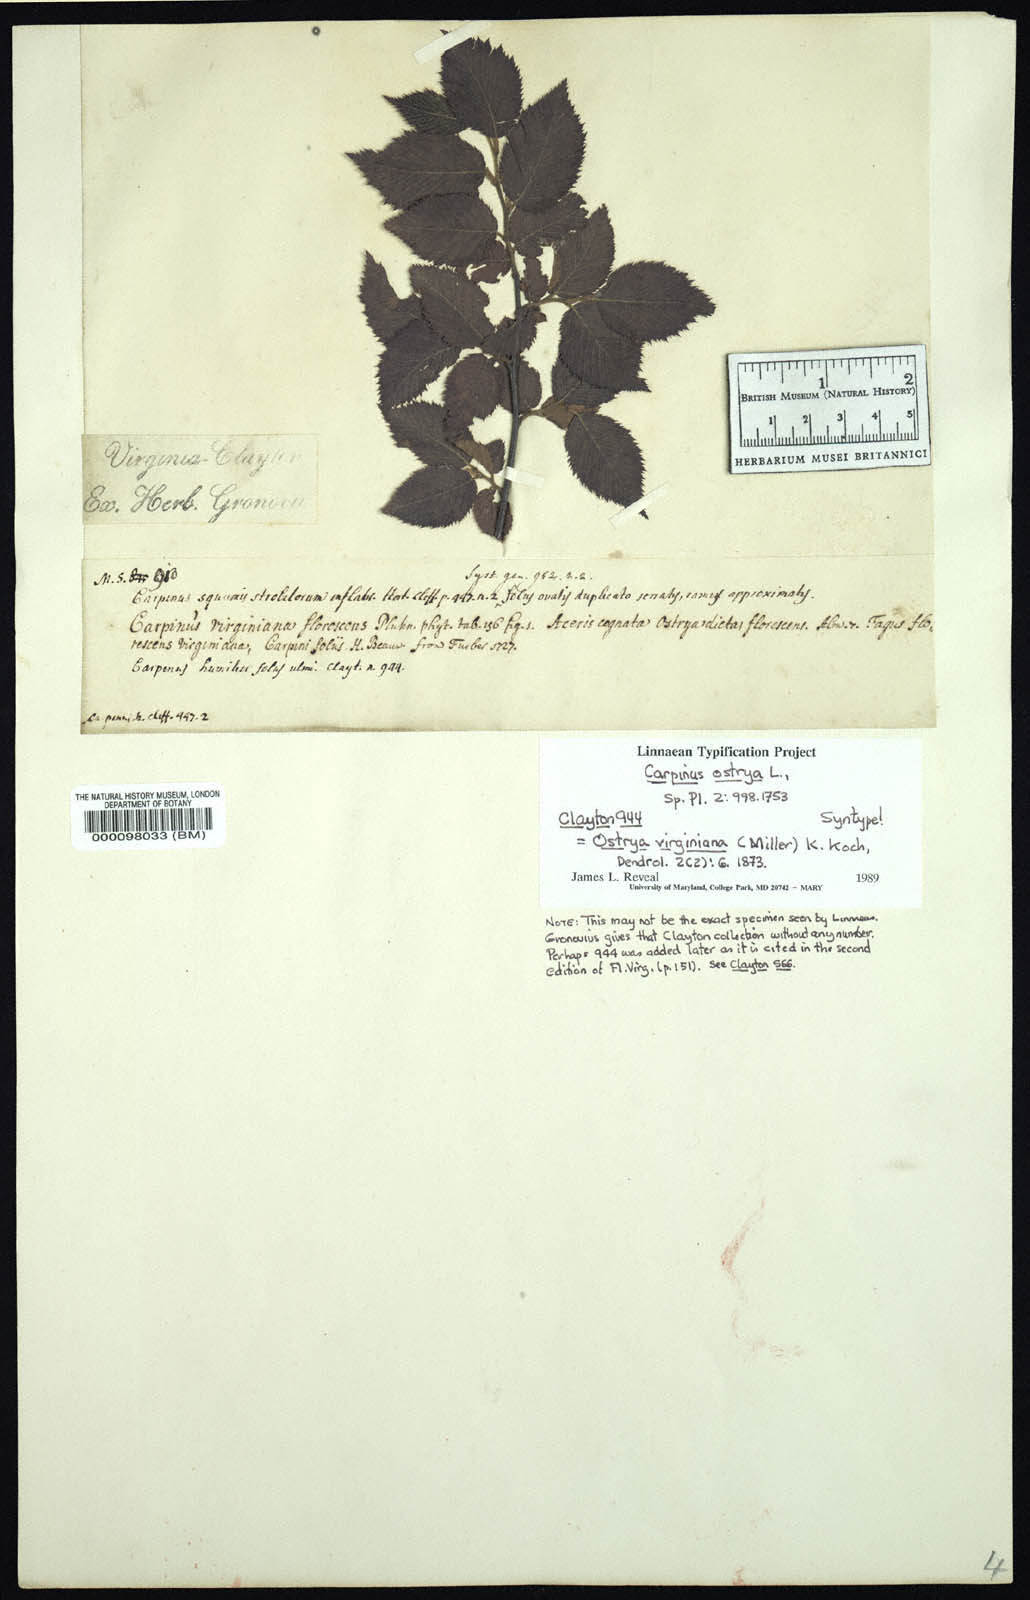 1 2
BRITISH MUSEUM (NATURAL HISTORY)
1 2 3 4 5
HERBARIUM MUSEI BRITANNICI
Virginia Clayton
Ex. Herb. Gronovii
M. S.
Syst. gen. 952. n. 2.
Carpinus squamis strobilorum inflatis. Hort. Cliff. p. 447. n. 2, foliis ovatis duplicato serratis, ramis approximatis.
Carpinus virginiana florescens Plukn. phyt. tab. 156 fig. 1. Aceris cognata Ostrya dicta florescens. Fagus flo-
rescens virginiana, Carpini foliis. H. Beaum from Furber 1727.
Carpinus humilior foliis ulmi. Clayt. n. 944.
Cliff. 447. 2
THE NATURAL HISTORY MUSEUM, LONDON
DEPARTMENT OF BOTANY
000098033 (BM)
Linnaean Typification Project
Carpinus ostrya L.,
Sp. Pl. 2: 998. 1753
Clayton 944 Syntype!
= Ostrya virginiana (Miller) K. Koch,
Dendrol. 2(2): 6. 1873.
James L. Reveal 1989
University of Maryland, College Park, MD 20742 – MARY
NOTE: This may not be the exact specimen seen by Linnaeus.
Gronovius gives that Clayton collection without any number.
Perhaps 944 was added later as it is cited in the second
edition of Fl. Virg. (p. 151). See Clayton 566.
4